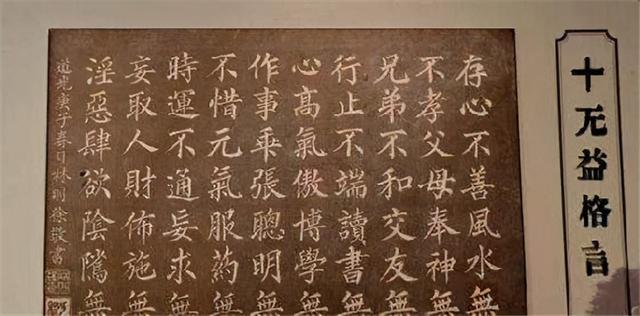 十无益格言
存心不善風水無
不孝父母奉神無
兄弟不和交友無
行止不端讀書無
心高氣傲博學無
作事乖張聰明無
不惜元氣服葯無
時運不通妄求無
妄取人財佈施無
淫惡肆欲陰隲無
道光庚子春日林則徐敬書